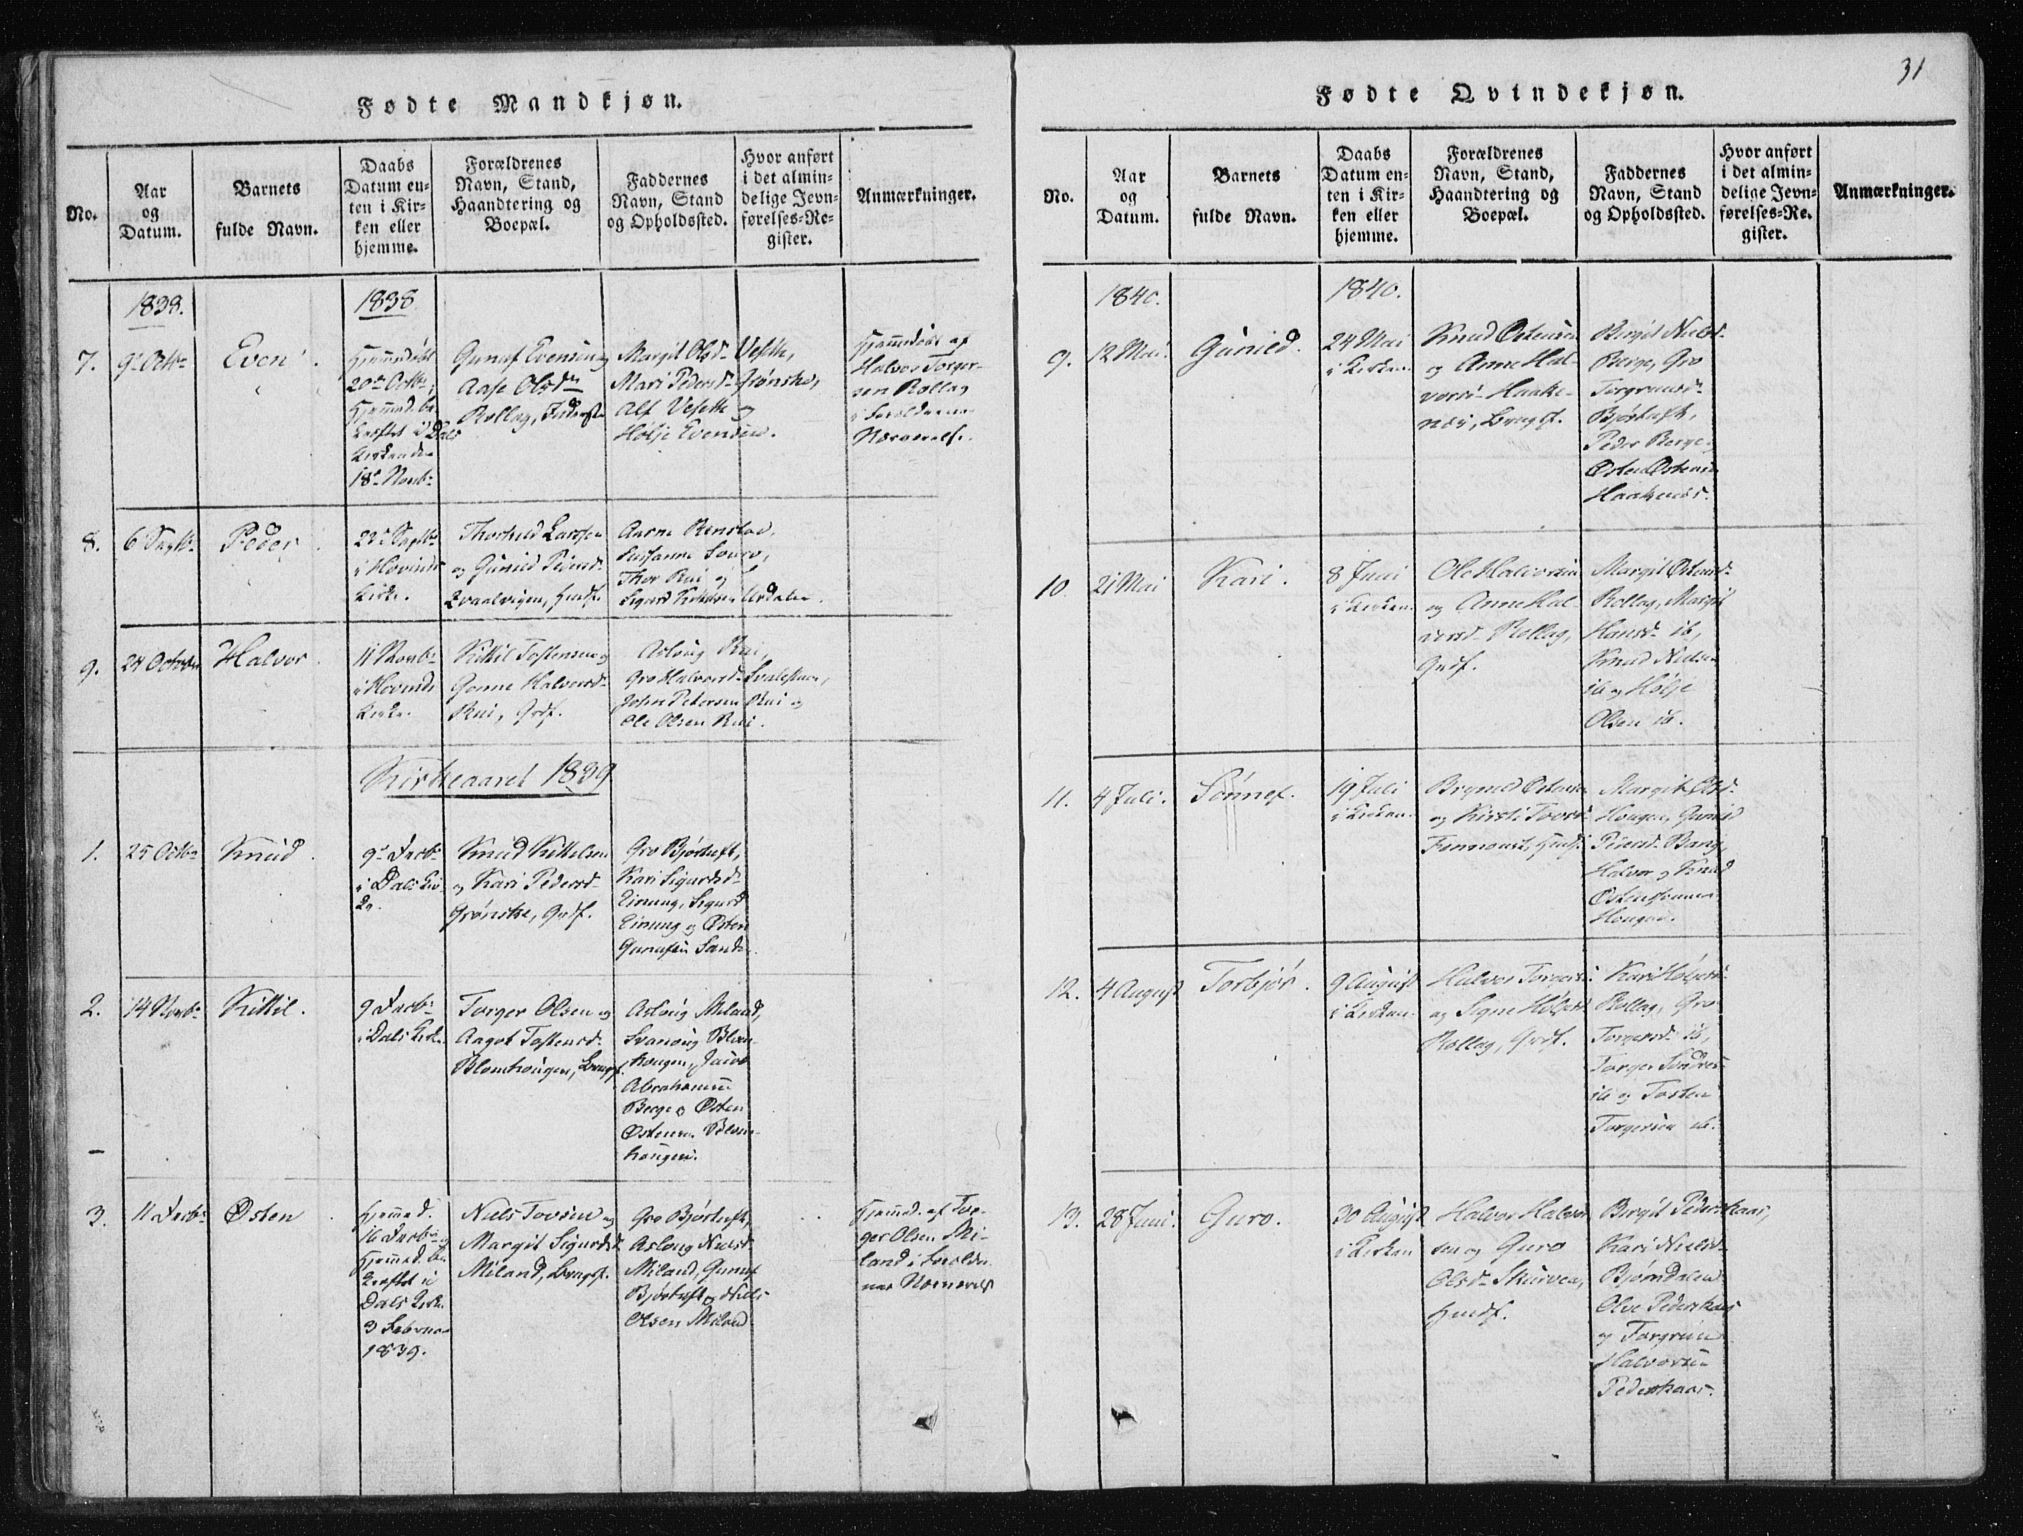 31
Fødte Mandkjøn.
No.
Aar
og
Datum.
Barnets
fulde Navn.
Daabs
Datum en-
ten i Kir-
ken eller
hjemme.
Forældrenes
Navn, Stand,
Haandtering og
Boepæl.
Faddernes
Navn, Stand
og Opholdssted.
Hvor anført
i det almin-
delige Jevn-
førelses-Re-
gister.
Anmærkninger.
1838.
1838
7.
9de Octbr
Even
Hjemmedøbt
20de Octbr,
Hjemmed. be-
kræftet i Dals
Kirke den
18de Novbr
Gunuf Evensen og
Aase Olsdr
Rollag, Inderste
Margit Olsdr Vesetle,
Mari Pedersdr Grønske,
Alf Vesetle og
Hølje Evensen.
Hjemmedøbt af
Halvor Torger-
sen Rollag
i Forældrenes
Nærværelse.
8.
6 Septbr
Peder
22de Septbr
i Hovinds
Kirke.
Thorkild Larsen
og Gunild Pedersdr
Kvaalvigen, Huusf.
Aasne
Susanne
Thor Rui og
Sigurd Kittelsen Urdalen.
9.
24 October
Halvor
11 Novbr
i Hovinds
Kirke.
Kittil Tostensen og
Gonne Halvorsdr
Rui, Grdf.
Asloug Rui,
Gro Halvorsdr
John Petersen Rui og
Ole Olsen Rui.
Kirkeaaret 1839
1.
25 Octbr
Knud
9de Decbr
i Dals Kir-
ke.
Knud Kittelsen
og Kari Pedersdr
Grønske, Grdf.
Gro Bjørtuft,
Kari Sigurdsdr
Einung, Sigurd
Einung og Østen
Gunufsen Sande.
2.
14 Novbr
Kittil.
9 Decbr
i Dals Kirke
Torger Olsen og
Aagot Tostensdr
Blomhougen, Brugsf.
Asloug Miland,
Svanoug Blom-
hougen, Jacob
Abrahamsen
Berge og Østen
Østensen
hougen.
3.
11 Decbr
Østen
Hjemmed.
16 Decbr og
Hjemmed. be-
kræftet i
Dals Kirke
3 Februar
1839.
Niels Tovsen og
Margit Sigurdsdr
Miland, Brugsf.
Gro Bjørtuft,
Asloug Nielsdr
Miland, Gunuf
Bjørtuft og Niels
Olsen Miland
Hjemmed. af Tor-
ger Olsen Mi-
land i Forældre-
nes Nærværelse
Fødte Qvindekjøn.
No.
Aar
og
Datum.
Barnets
fulde Navn.
Daabs
Datum en-
ten i Kir-
ken eller
hjemme.
Forældrenes
Navn, Stand,
Haandtering og
Boepæl.
Faddernes
Navn, Stand
og Opholdssted.
Hvor anført
i det almin-
delige Jevn-
førelses-Re-
gister.
Anmærkninger.
1840.
1840.
9.
12 Mai
Gunild.
24 Mai
i Kirken
Knud Østensen
og Anne Hal-
vorsdr Haake-
næs, Brugsf.
Birgit Nielsdr
Berge, Gro
Torgrimsdr
Bjørtuft,
Peder Berge
Østen Østensen
Haakenæs.
10.
21 Mai
Kari.
8 Juni
i Kirken
Ole Halvorsen
og Anne Hal-
vorsdr Rollag,
Grdf.
Margit Østensdr
Rollag, Margit
Hansdr ib,
Knud Nielsen
ib og Hølje
Olsen ib.
11.
4 Juli.
Sønnef.
19 Juli
i Kirken.
Brynild Østensen
og Kirsti Tovsdr
Huusf.
Margit Olsdr
Hougen, Gunild
Pedersdr
Halvor og Knud
Østenssønner
Hougen.
12.
4 August
Torbjør.
9 August
i Kirken.
Halvor Torgersen
og Signe Høljesdr
Rollag, Grdf.
Kari Høljesdr
Rollag, Gro
Torgersdr ib,
Torger Sondresen
ib og Tosten
Torgersen ib.
13.
28 Juni.
Guro.
30 August
i Kirken
Halvor Halvor-
sen og Guro
Olsdr Skurven,
Huusf.
Birgit Pedershaar,
Kari Nielsdr
Bjørndalen
Olve Pedershaar
og Torgrim
Halvorsen
Pedershaar.